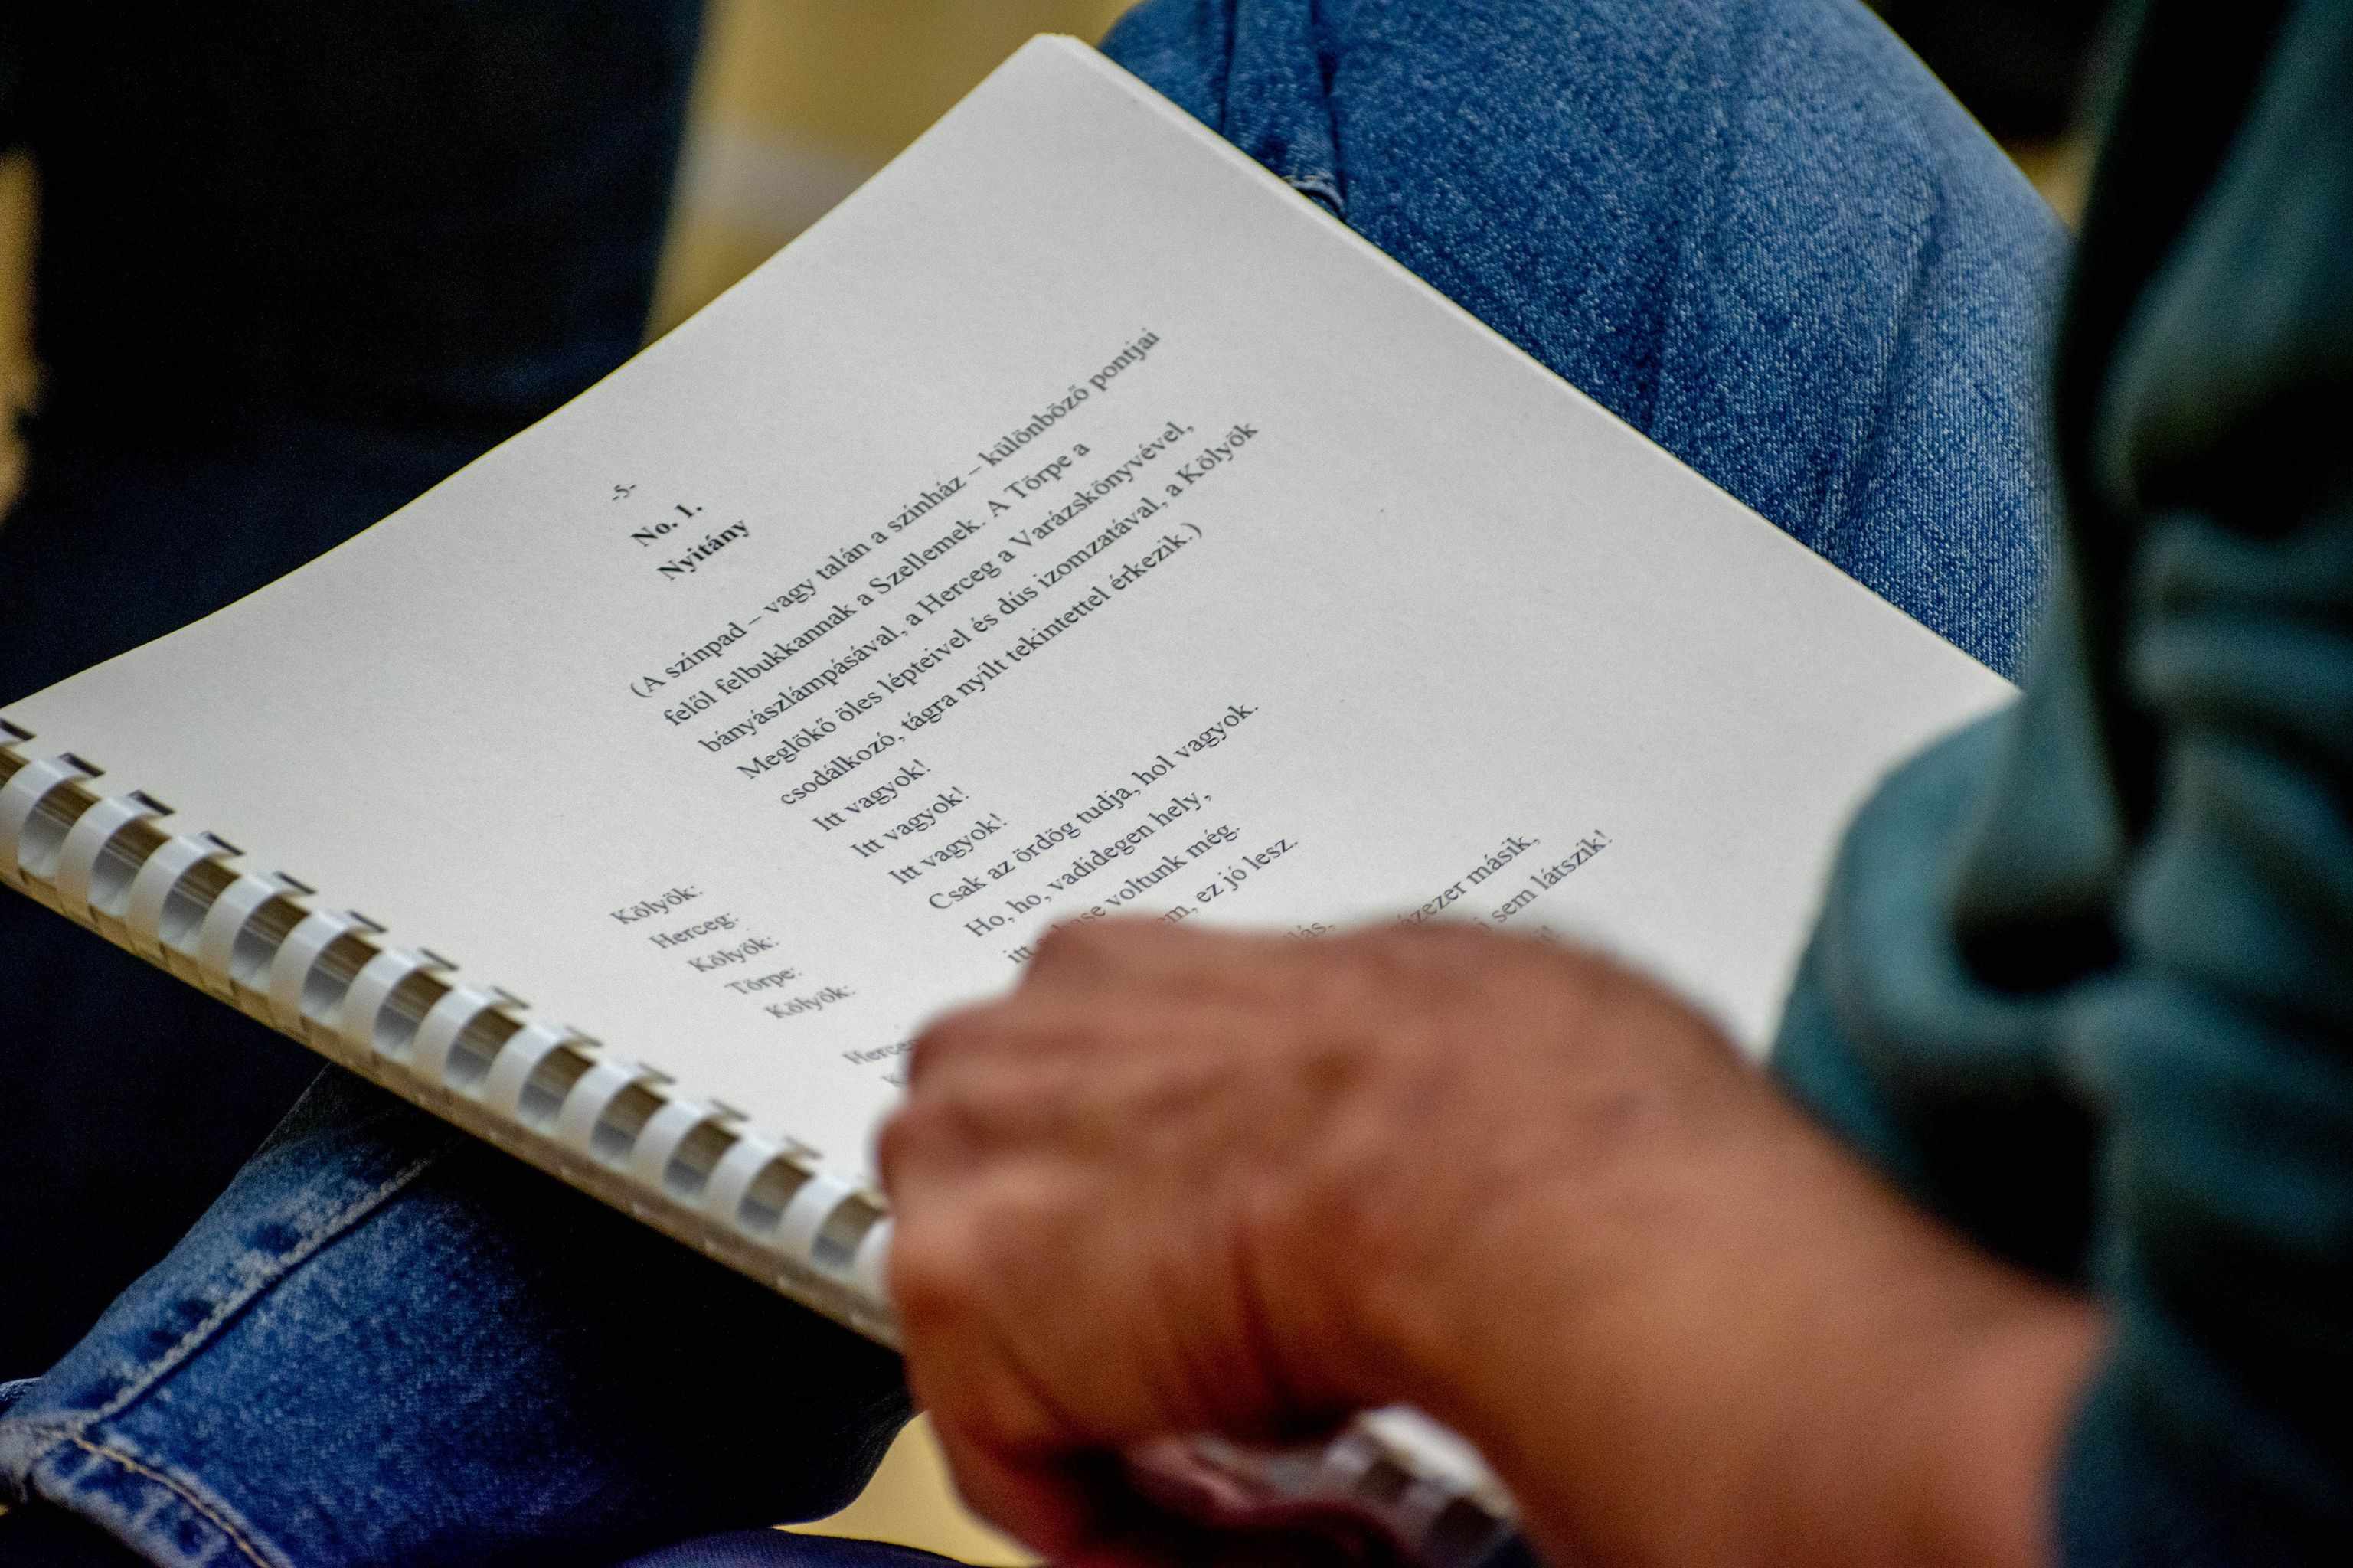 -5-
No. 1.
Nyitány
(A színpad – vagy talán a színház – különböző pontjai
felől felbukkannak a Szellemek. A Törpe a
bányászlámpásával, a Herceg a Varázskönyvével,
Meglökő öles lépteivel és dús izomzatával, a Kölyök
csodálkozó, tágra nyílt tekintettel érkezik.)
Kölyök: Itt vagyok!
Herceg: Itt vagyok!
Kölyök: Itt vagyok!
Törpe: Csak az ördög tudja, hol vagyok.
Kölyök: Ho, ho, vadidegen hely,
itt voltunk még.
ez jó lesz.
másik,
sem látszik!